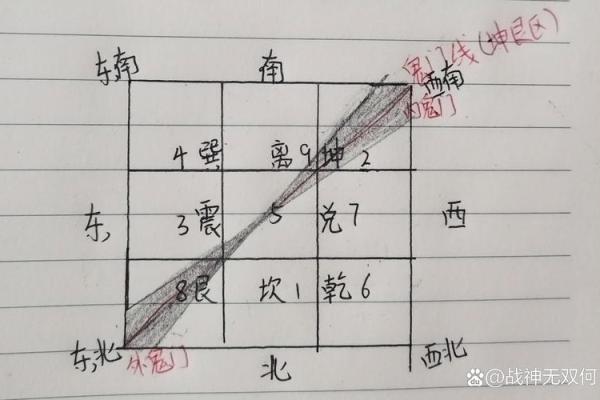 鬼门线(坤艮区)
东南 南 西南
内鬼门
4巽 离9 坤2
东 3震 5 兑7 西
8艮 坎1 乾6
东北 北 西北
外鬼门
@战神无双何